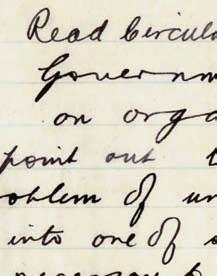 Read Circula
Governm
on orga
point out
roblem of un
into one of